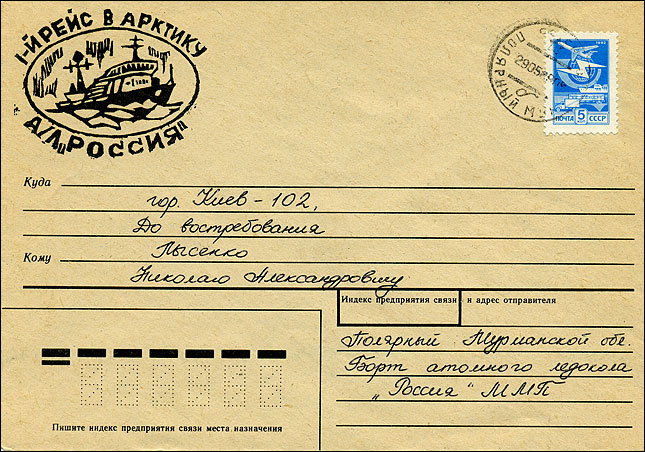 1-Й РЕЙС В АРКТИКУ
А/Л „РОССИЯ"
ПОЛЯРНЫЙ
ПОЧТА 5 СССР
Куда
гор. Киев - 102,
До востребования
Кому
Лысенко
Николаю Александровичу
Индекс предприятия связи и адрес отправителя
Полярный Мурманской обл.
Борт атомного ледокола
„Россия" ММП
Пишите индекс предприятия связи места назначения